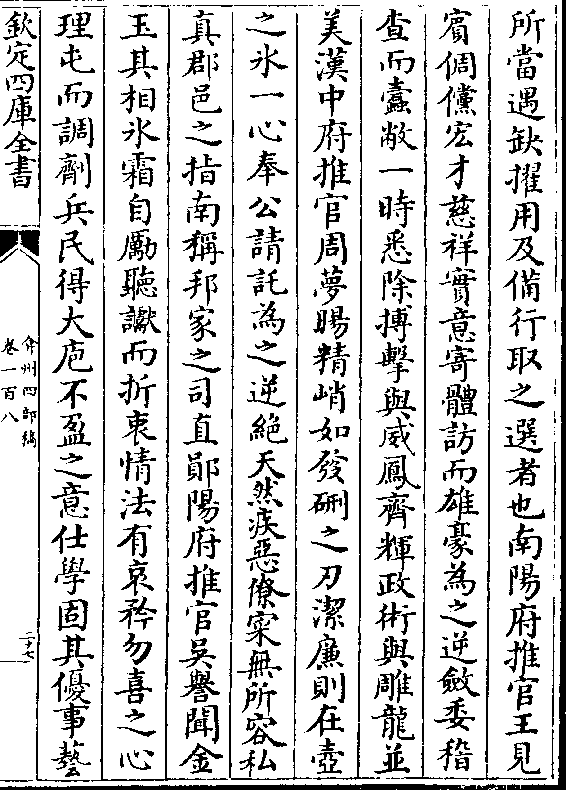 所當遇缺擢用及備行取之選者也南陽府推官王見
賓倜儻宏才慈祥實意寄體訪而雄豪為之逆斂委稽
查而蠧敝一時悉除搏擊與威鳳齊輝政術與雕龍並
美漢中府推官周夢暘精峭如發硎之刃潔廉則在壺
之氷一心奉公請託為之逆絶天然疾惡僚寀無所容私
真郡邑之指南稱邦家之司直鄖陽府推官吳譽聞金
玉其相氷霜自厲聽讞而折衷情法有哀矜勿喜之心
理屯而調劑兵民得大庖不盈之意仕學固其優事藝
欽定四庫全書
弇州四部稿
卷一百八
二十七